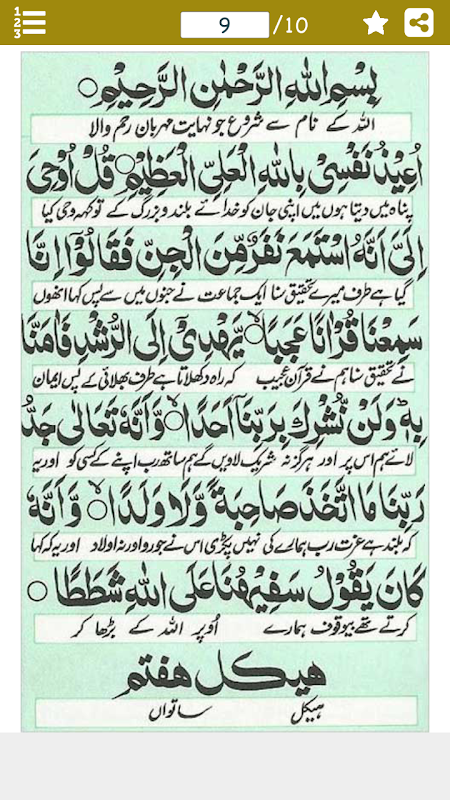 9 /10
بِسْمِ اللهِ الرَّحْمٰنِ الرَّحِيْمِ ○
اللہ کے نام سے شروع جو نہایت مہربان رحم والا
اُعِيْذُ نَفْسِىْ بِاللهِ الْعَلِىِّ الْعَظِيْمِ ○ قُلْ اُوْحِىَ
پناہ میں دیتا ہوں میں اپنی جان کو خدائے بلند و بزرگ کے تو کہہ وحی کیا
اِلَىَّ اَنَّهُ اسْتَمَعَ نَفَرٌ مِّنَ الْجِنِّ فَقَالُوْٓا اِنَّا
گیا ہے طرف میرے تحقیق سنا ایک جماعت نے جنوں میں سے پس کہا انھوں
سَمِعْنَا قُرْاٰنًا عَجَبًا ○ يَّهْدِىْٓ اِلَى الرُّشْدِ فَاٰمَنَّا
نے تحقیق سنا ہم نے قرآن عجیب کہ راہ دکھلاتا ہے طرف بھلائی کے پس ایمان
بِهٖ وَلَنْ نُّشْرِكَ بِرَبِّنَآ اَحَدًا ○ وَّاَنَّهٗ تَعَالٰى جَدُّ
لائے ہم اس پر اور ہرگز نہ شریک لاویں گے ہم ساتھ رب اپنے کے کسی کو اور یہ
رَبِّنَا مَا اتَّخَذَ صَاحِبَةً وَّلَا وَلَدًا ○ وَّاَنَّهٗ
کہ بلند ہے عزت رب ہمارے کی نہیں پکڑی اس نے جورو اور نہ اولاد اور یہ کہ کہا
كَانَ يَقُوْلُ سَفِيْهُنَا عَلَى اللهِ شَطَطًا ○
کرتے تھے بیوقوف ہمارے اُوپر اللہ کے بڑھا کر
هيكل هفتم
ہیکل ساتواں